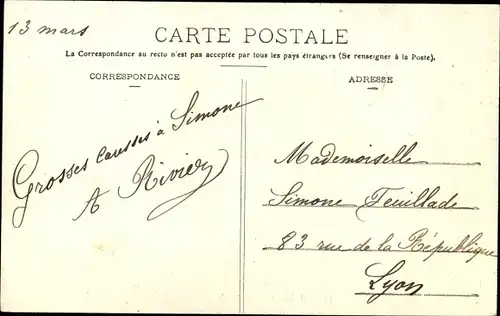 13 mars
CARTE POSTALE
La Correspondance au recto n'est pas acceptée par tous les pays étrangers (Se renseigner à la Poste).
CORRESPONDANCE
ADRESSE
Grosses caresses à Simone
A Rivier
Mademoiselle
Simone Feuillade
83 rue de la République
Lyon